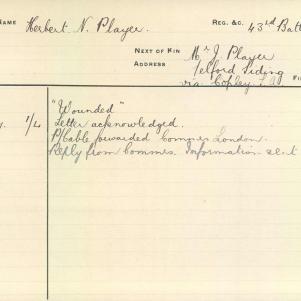 NAME Herbert N. Player. REG. &C. 43rd Batt
NEXT OF KIN Mr J. Player
ADDRESS Telford Siding
via Copley.
"Wounded"
1/4 Letter acknowledged.
P/Cable forwarded Commrs London.
Reply from Commrs. Information sent